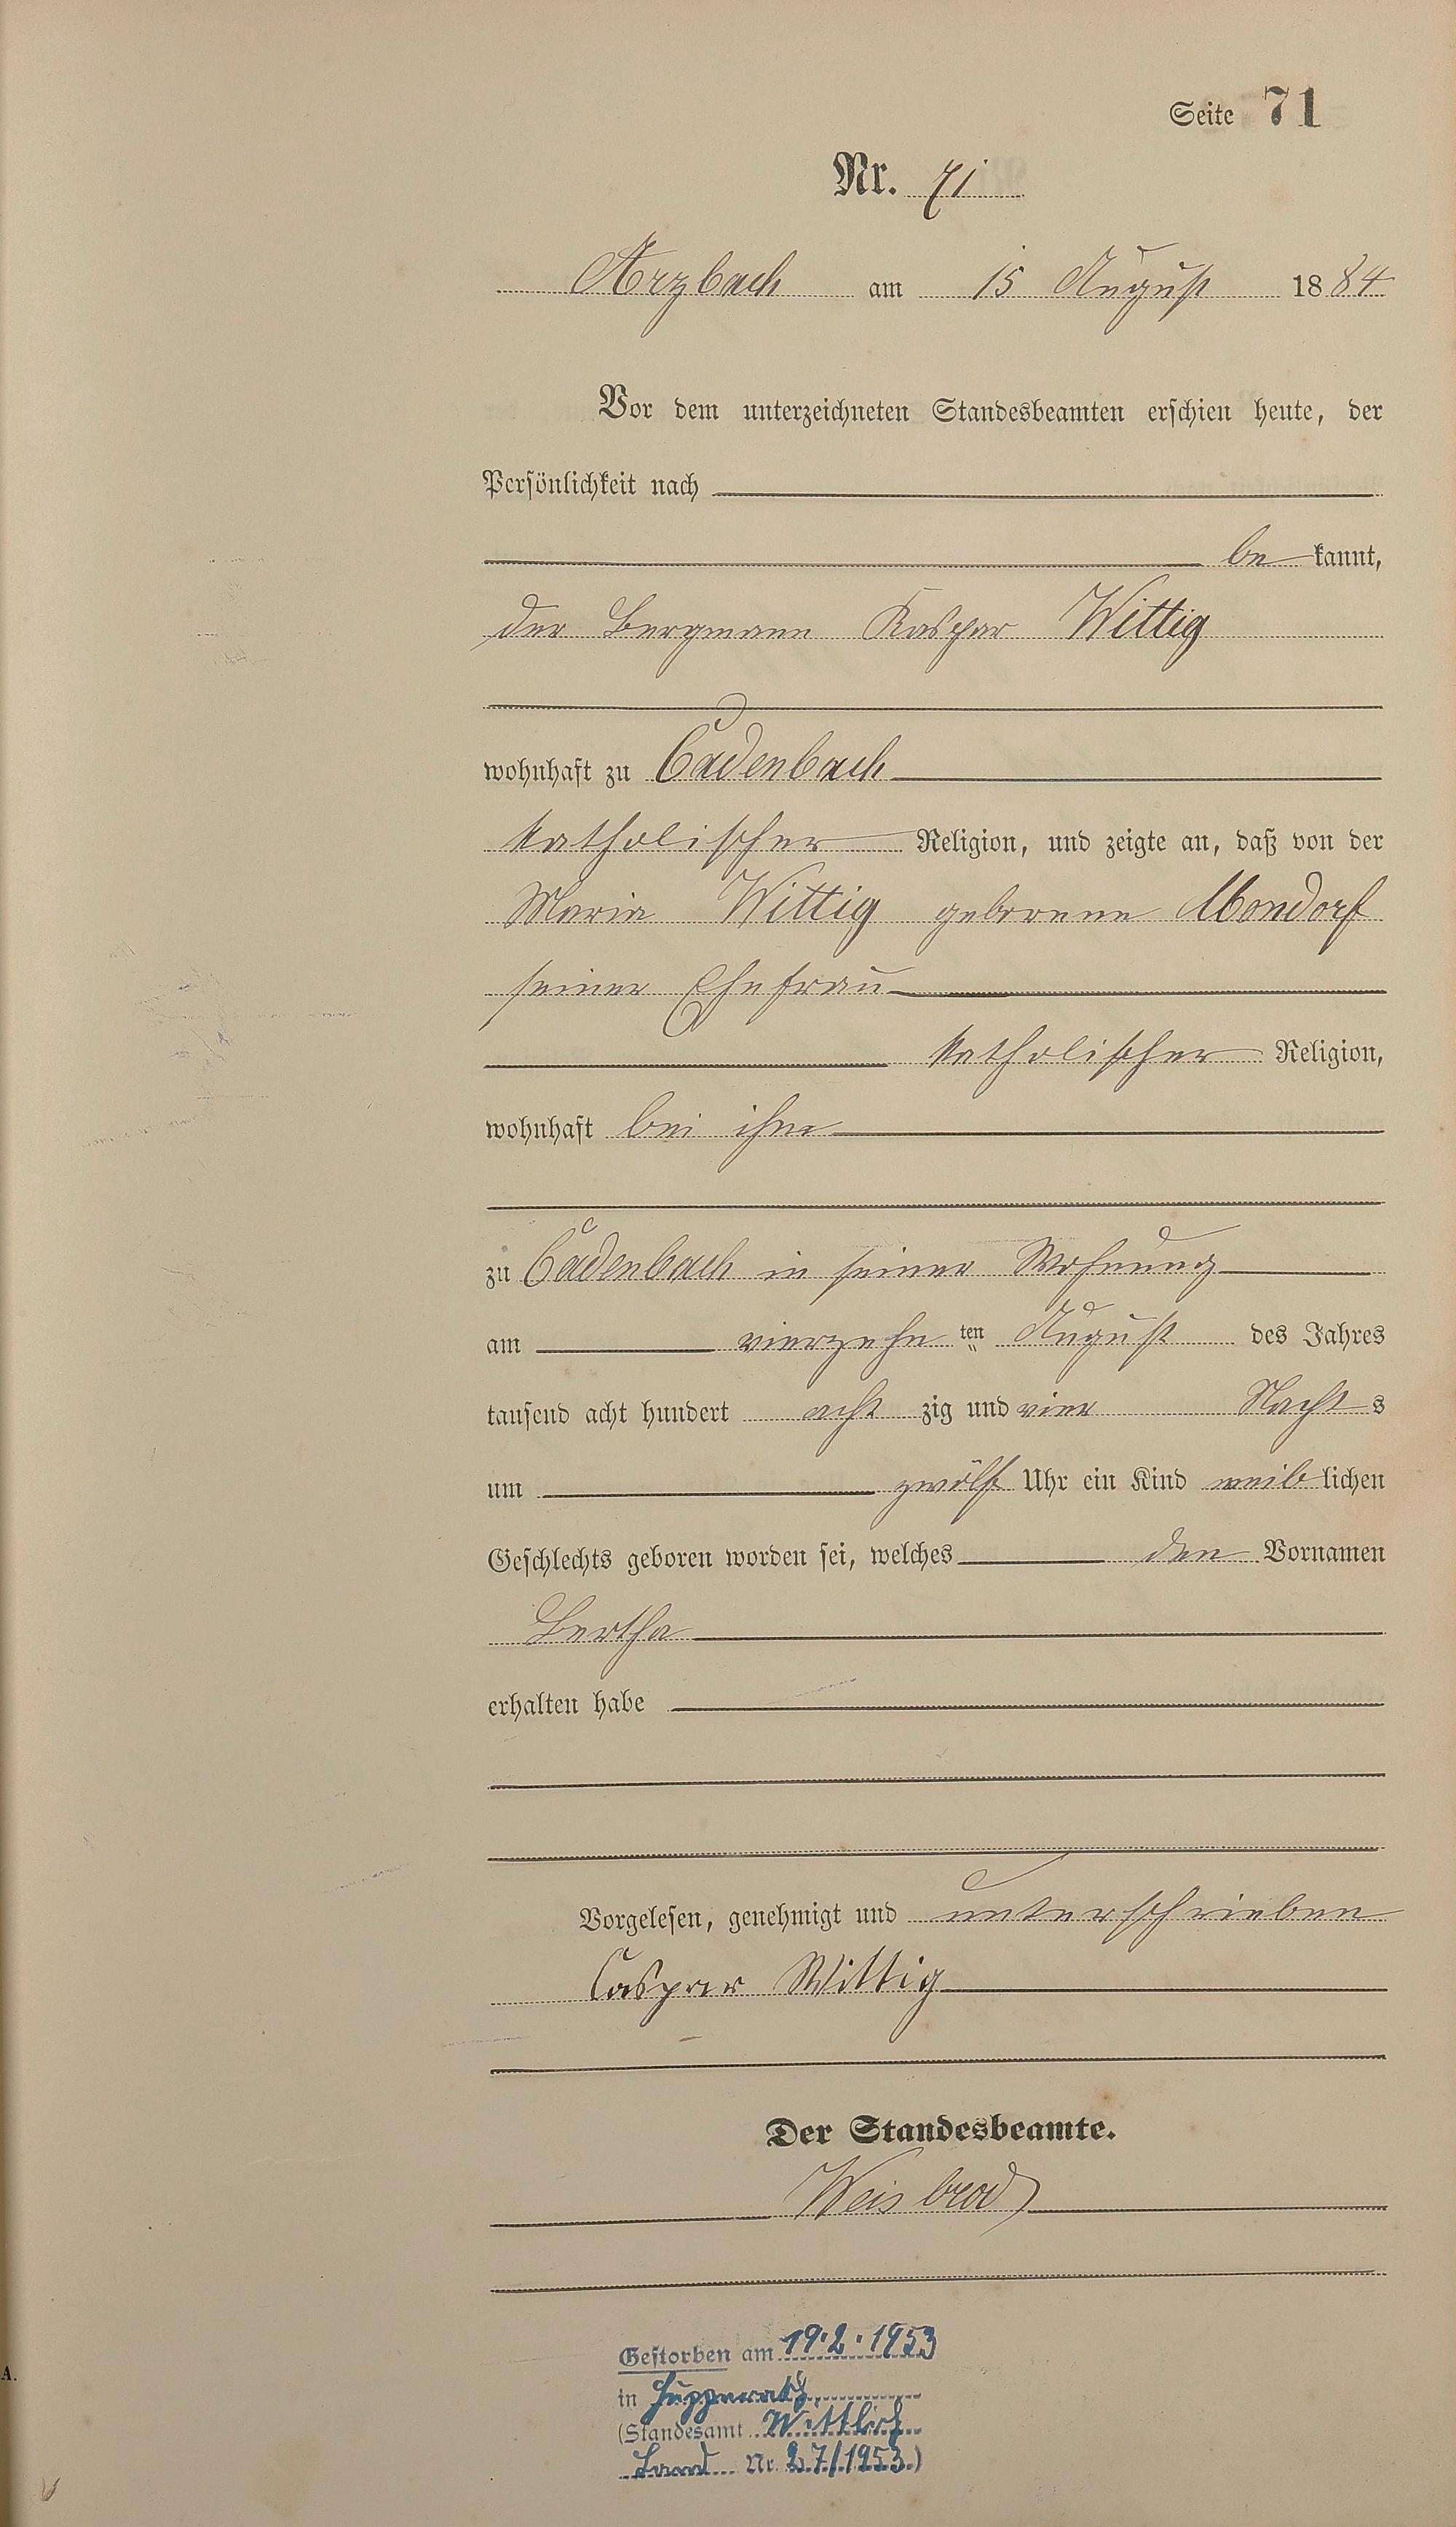 Seite 71
Nr. 71
Arzbach am 15 August 1884
Vor dem unterzeichneten Standesbeamten erschien heute, der
Persönlichkeit nach
be kannt,
der Bergmann Kaspar Wittig
wohnhaft zu Cadenbach
katholischer Religion, und zeigte an, daß von der
Maria Wittig geborene Mondorf
seiner Ehefrau
katholischer Religion,
wohnhaft bei ihm
zu Cadenbach in seiner Wohnung
am vierzehn ten August des Jahres
tausend acht hundert acht zig und vier Nacht s
um zwölf Uhr ein Kind weib lichen
Geschlechts geboren worden sei, welches den Vornamen
Bertha
erhalten habe
Vorgelesen, genehmigt und unterschrieben
Caspar Wittig
Der Standesbeamte.
Weisbrod
Gestorben am 19.2.1953
in Hupperath
(Standesamt Wittlich
Land Nr. 27/1953.)
A.